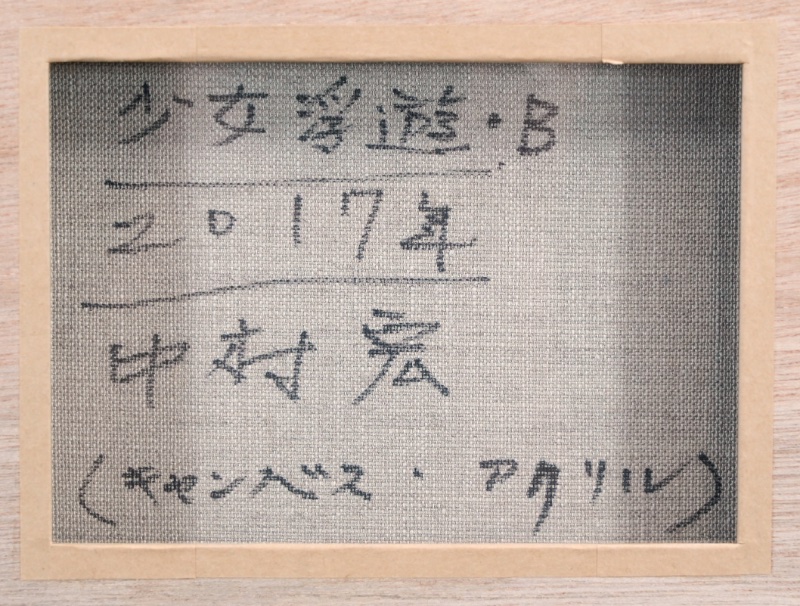 少女浮遊・B
2017年
中村宏
(キャンバス・アクリル)